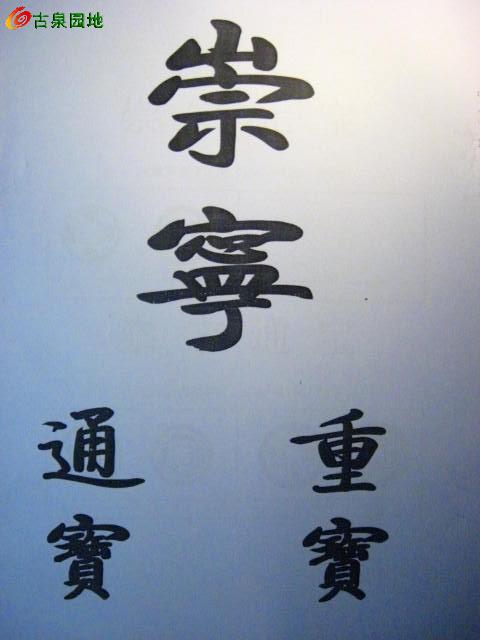 古泉园地
崇
寧
重寶
通寶